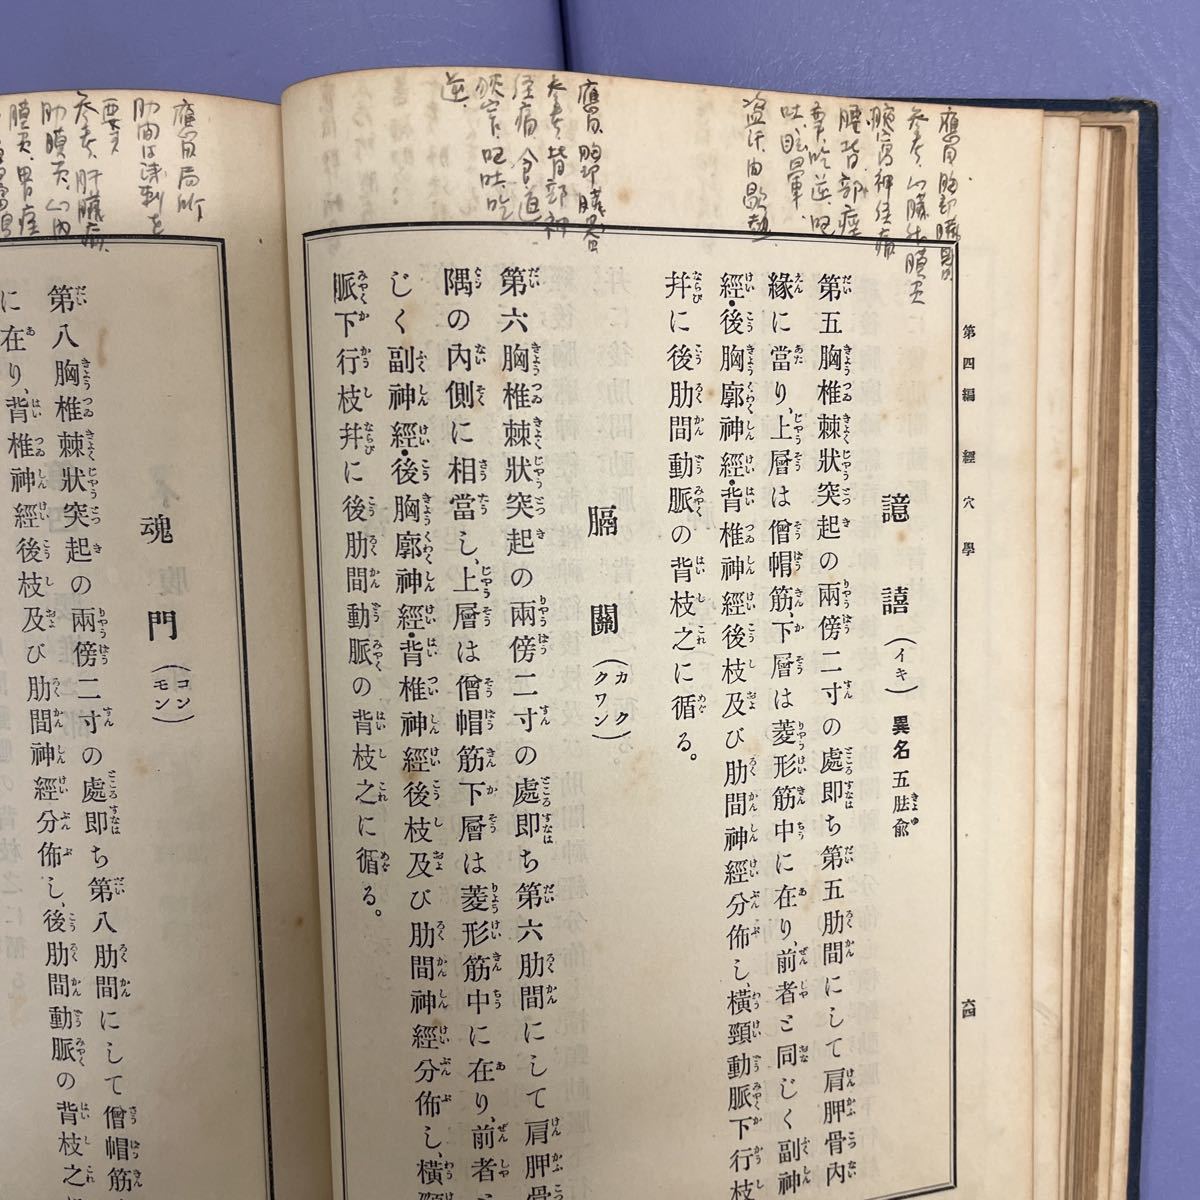 第四編　經穴學
六四
譩譆（イキ）異名五胠兪
第五胸椎棘狀突起の兩傍二寸の處即ち第五肋間にして肩胛骨內
緣に當り、上層は僧帽筋、下層は菱形筋中に在り、前者と同じく副神
經・後胸廓神經・背椎神經後枝及び肋間神經分佈し、橫頸動脈下行枝
幷に後肋間動脈の背枝之に循る。
膈關（カククワン）
第六胸椎棘狀突起の兩傍二寸の處即ち第六肋間にして肩胛骨
隅の內側に相當し、上層は僧帽筋下層は菱形筋中に在り、前者
じく副神經・後胸廓神經・背椎神經後枝及び肋間神經分佈し、橫頸
脈下行枝幷に後肋間動脈の背枝之に循る。
魂門（コンモン）
第八胸椎棘狀突起の兩傍二寸の處即ち第八肋間にして僧帽筋
に在り、背椎神經後枝及び肋間神經分佈し、後肋間動脈の背枝之
應用
參考
吐、眩暈、
應用
參考、背部神
經痛、食道
嘔吐、
逆、
應用局所
參考、肝臟
肋膜炎、心內
膜炎、胃痙